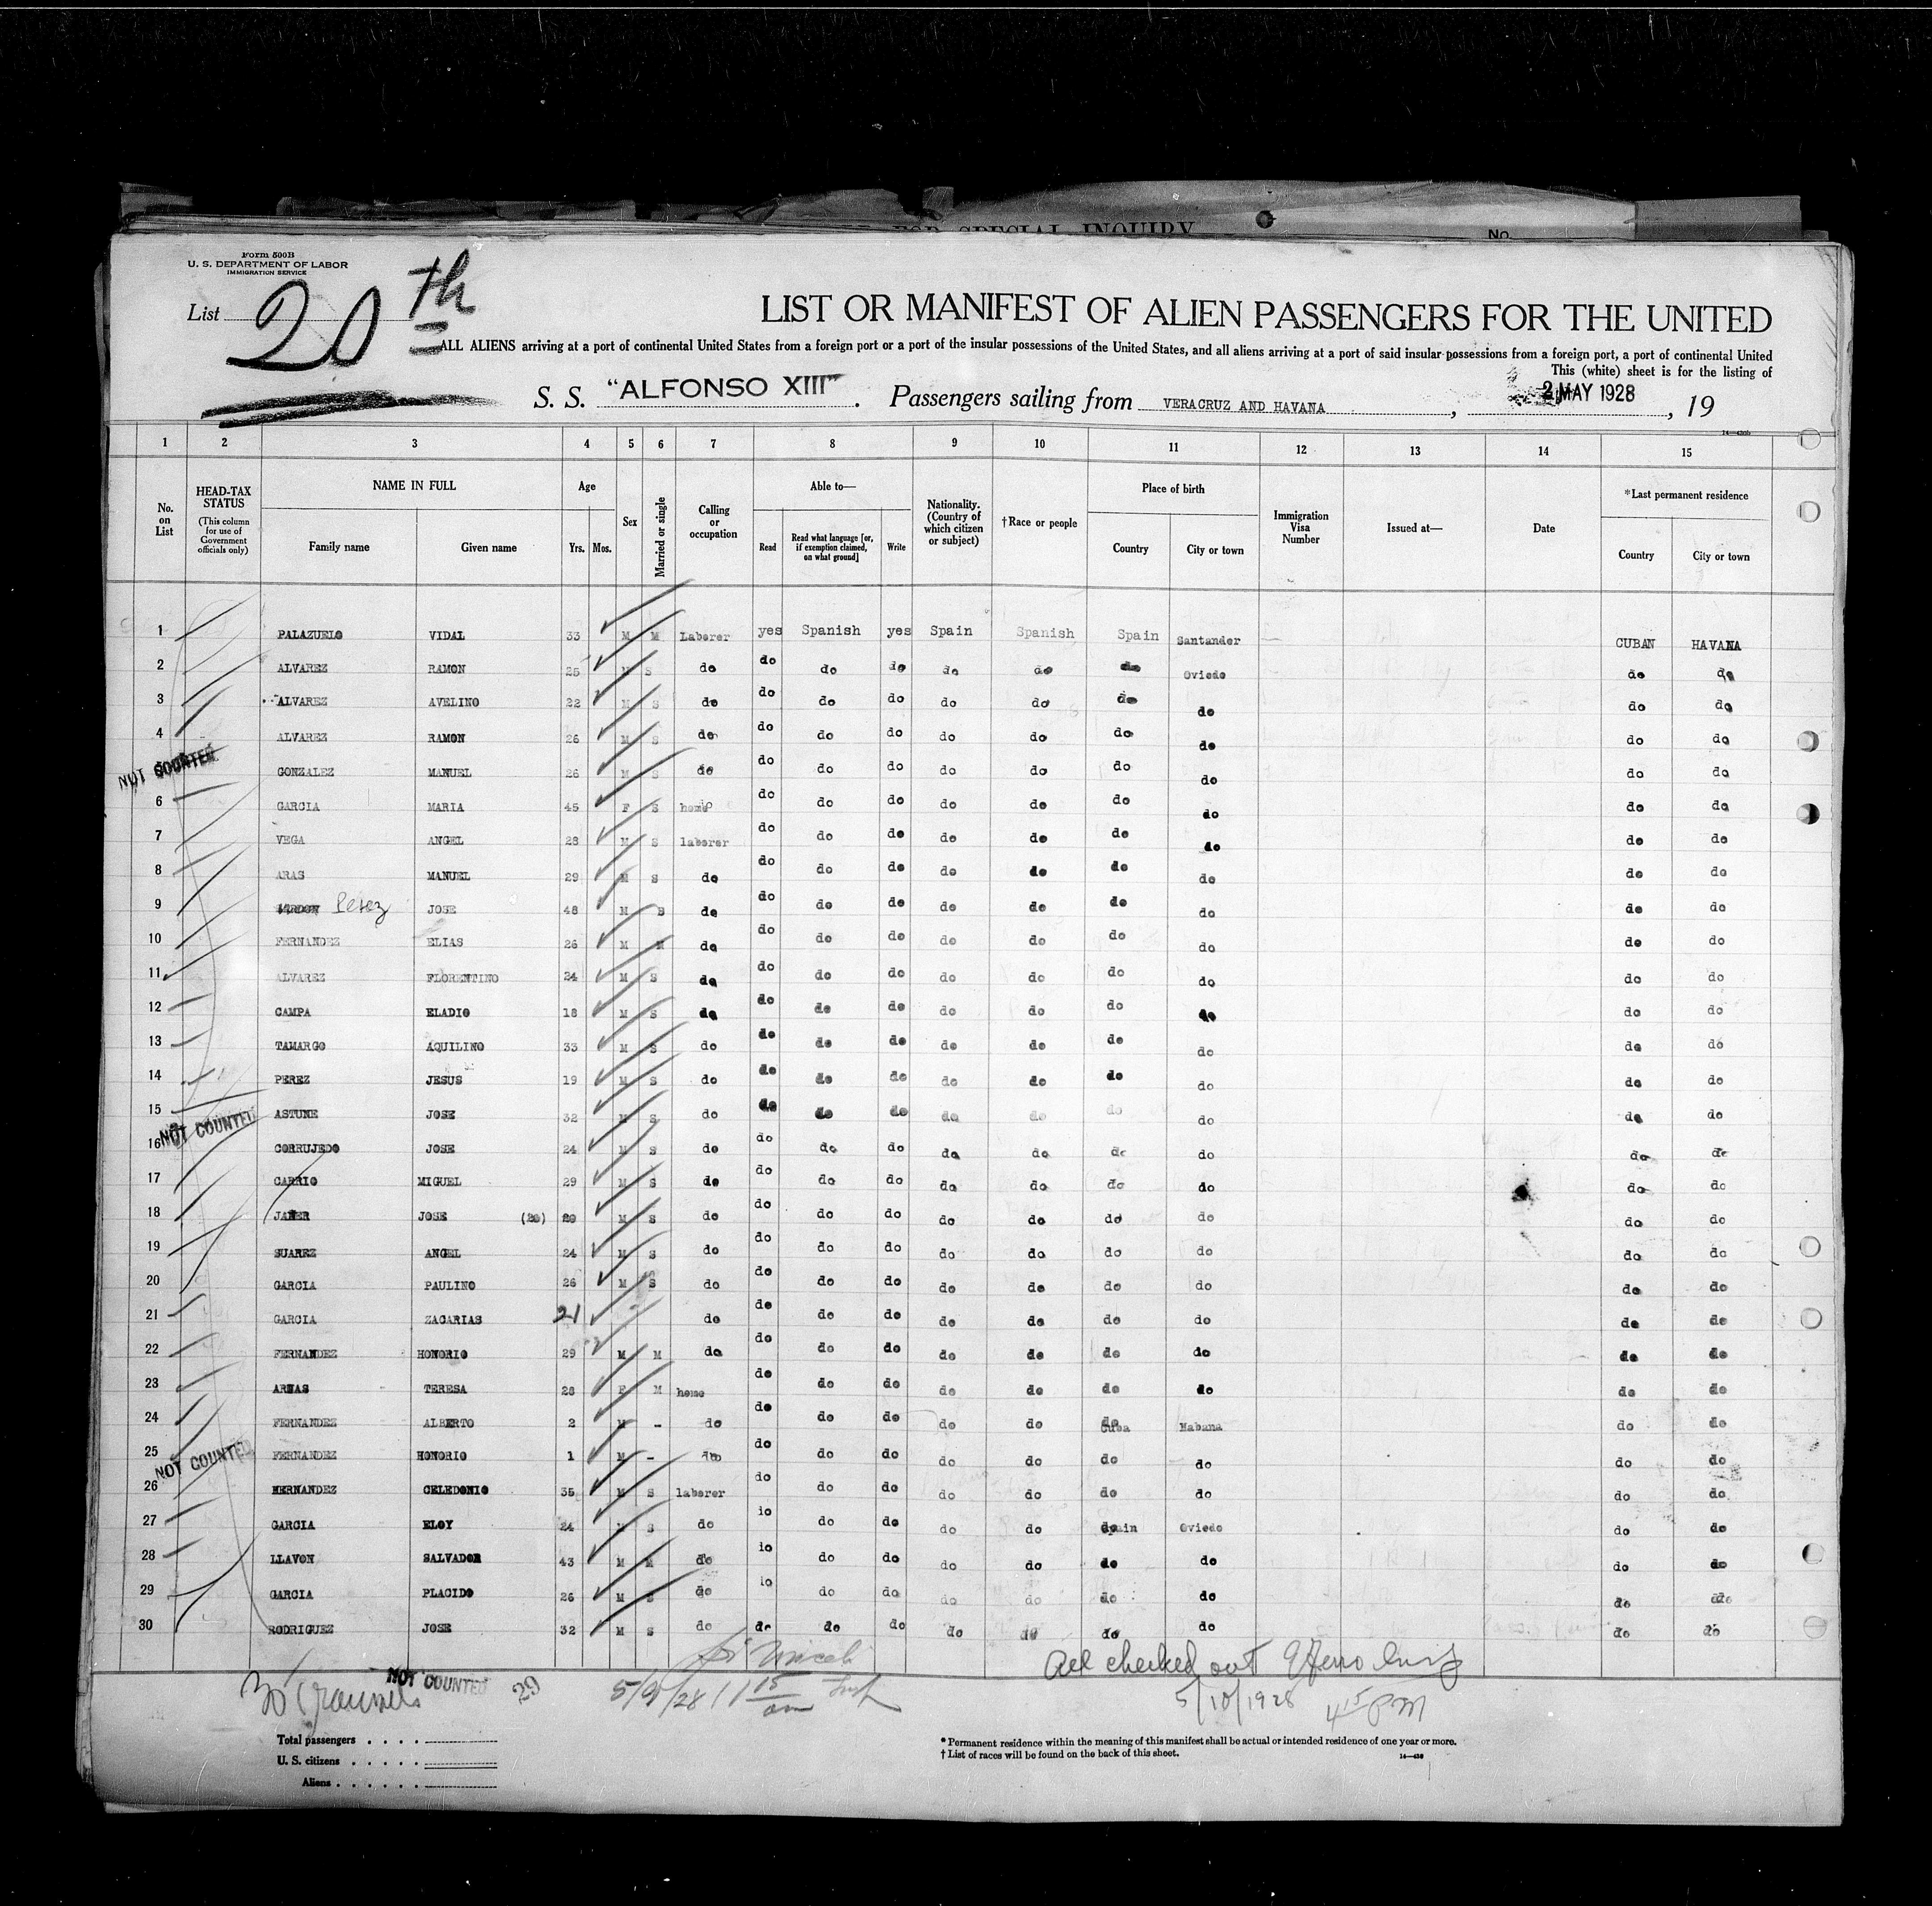 FOR SPECIAL INQUIRY
No.
Form 500B
U. S. DEPARTMENT OF LABOR
IMMIGRATION SERVICE
List 20 th
LIST OR MANIFEST OF ALIEN PASSENGERS FOR THE UNITED
ALL ALIENS arriving at a port of continental United States from a foreign port or a port of the insular possessions of the United States, and all aliens arriving at a port of said insular possessions from a foreign port, a port of continental United
This (white) sheet is for the listing of
S. S. "ALFONSO XIII". Passengers sailing from VERACRUZ AND HAVANA, 2 MAY 1928, 19
1 2 3 4 5 6 7 8 9 10 11 12 13 14 15
No. on List
HEAD-TAX STATUS
(This column for use of Government officials only)
NAME IN FULL
Family name Given name
Age
Yrs. Mos.
Sex
Married or single
Calling or occupation
Able to—
Read Read what language [or, if exemption claimed, on what ground] Write
Nationality. (Country of which citizen or subject)
†Race or people
Place of birth
Country City or town
Immigration Visa Number
Issued at—
Date
*Last permanent residence
Country City or town
1 PALAZUELO VIDAL 33 M M Laborer yes Spanish yes Spain Spanish Spain Santander CUBAN HAVANA
2 ALVAREZ RAMON 25 M S do do do do do do do Oviedo do do
3 ALVAREZ AVELINO 22 M S do do do do do do do do do do
4 ALVAREZ RAMON 26 M S do do do do do do do do do do
NOT COUNTED
GONZALEZ MANUEL 26 M S do do do do do do do do do do
6 GARCIA MARIA 45 F S home do do do do do do do do do
7 VEGA ANGEL 28 M S laborer do do do do do do do do do
8 ARAS MANUEL 29 M S do do do do do do do do do do
9 Perez JOSE 48 M S do do do do do do do do do do
10 FERNANDEZ ELIAS 26 M M do do do do do do do do do do
11 ALVAREZ FLORENTINO 24 M S do do do do do do do do do do
12 CAMPA ELADIO 18 M S do do do do do do do do do do
13 TAMARGO AQUILINO 33 M S do do do do do do do do do do
14 PEREZ JESUS 19 M S do do do do do do do do do do
15 ASTUNE JOSE 32 M S do do do do do do do do do do
NOT COUNTED
16 CORRUJEDO JOSE 24 M S do do do do do do do do do do
17 CARRIO MIGUEL 29 M S do do do do do do do do do do
18 JANER JOSE (20) 20 M S do do do do do do do do do do
19 SUAREZ ANGEL 24 M S do do do do do do do do do do
20 GARCIA PAULINO 26 M S do do do do do do do do do do
21 GARCIA ZACARIAS 21 do do do do do do do do do do
22 FERNANDEZ HONORIO 29 M M do do do do do do do do do do
23 ARNAS TERESA 28 F M home do do do do do do do do do
24 FERNANDEZ ALBERTO 2 M - do do do do do do Cuba Habana do do
25 FERNANDEZ HONORIO 1 M - do do do do do do do do do do
NOT COUNTED
26 HERNANDEZ CELEDONIO 35 M S laborer do do do do do do do do do
27 GARCIA ELOY 24 M S do io do do do do Spain Oviedo do do
28 LLAVON SALVADOR 43 M M do io do do do do do do do do
29 GARCIA PLACIDO 26 M S do io do do do do do do do do
30 RODRIGUEZ JOSE 32 M S do do do do do do do do do do
NOT COUNTED
30 29
5/9/28 11 15 am
All checked out
5/10/1928 4 15 PM
Total passengers
U. S. citizens
Aliens
* Permanent residence within the meaning of this manifest shall be actual or intended residence of one year or more.
† List of races will be found on the back of this sheet.